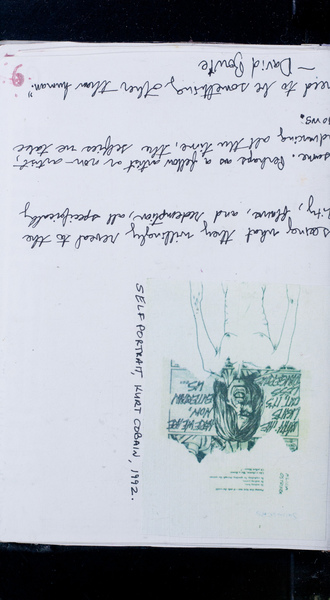 WITH THE
LIGHTS
OUT, IT'S
LESS
DANGEROUS
HERE WE ARE
NOW,
ENTERTAIN
US
SELF PORTRAIT, KURT COBAIN, 1992.
seeing what they willingly reveal to the
flaws, and redemption all specifically
some. Perhaps as a fellow artist or non-artist,
all the time, the selfies we take
need to be something other than human."
— David Bowie